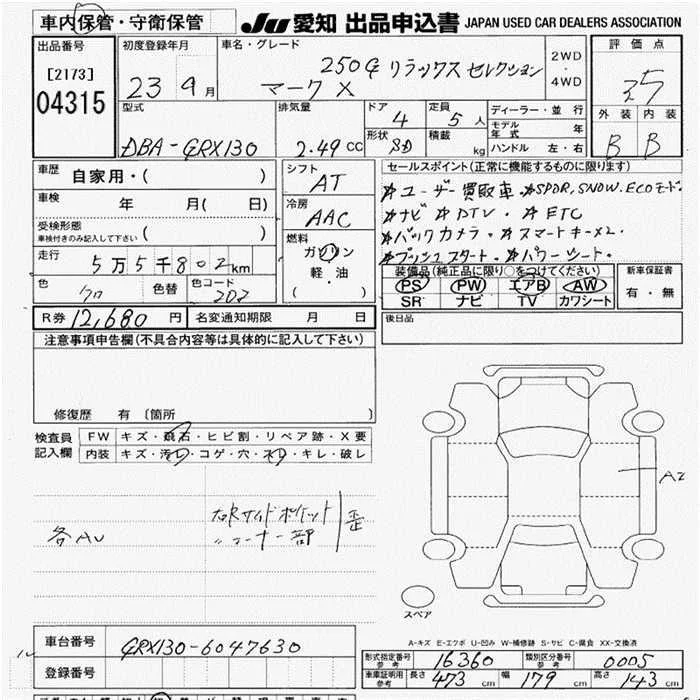 車内保管・守衛保管
JU 愛知 出品申込書 JAPAN USED CAR DEALERS ASSOCIATION
出品番号
[2173]
04315
初度登録年月
23 9月
車名・グレード
250G リラックスセレクション
マークX
2WD
4WD
評価点
外装 内装
B B
型式
DBA-GRX130
排気量
2.49 CC
ドア
4
定員
5人
形状
SD
積載
kg
ディーラー・並行
モデル年式 年
ハンドル 左・右
車歴
自家用・( )
車検 年 月( 日)
受検形態
車検付きのみ記入して下さい ( )
走行
5万5千802km
色
クロ
色替
色コード
202
シフト
AT
冷房
AAC
燃料
ガソリン
軽・油
( )
セールスポイント(正常に機能するものに限ります)
*ユーザー買取車.*SPOR,SNOW.ECOモード.
*ナビ *DTV. *ETC
*バックカメラ.*スマートキー×2.
*プッシュスタート.*パワーシート.
装備品(純正品に限り○をつけてください)
PS PW エアB AW
SR ナビ TV カワシート
新車保証書
有・無
R券 12,680円
名変通知期限 月 日
後日品
注意事項申告欄(不具合内容等は具体的に記入して下さい)
修復歴 有 〔箇所 〕
検査員記入欄
FW キズ・飛石・ヒビ割・リペア跡・X要
内装 キズ・汚レ・コゲ・穴・スレ・キレ・破レ
各AU
右Rサイドポケット
〃コーナー部
歪
A2
スペア
A-キズ E-エクボ U-凹み W-補修跡 S-サビ C-腐食 XX-交換済
車台番号
GRX130-6047630
登録番号
形式指定番号
参考
16360
類別区分番号
参考
0005
車庫証明用
参考
長さ 473 cm
幅 179 cm
高さ 143 cm